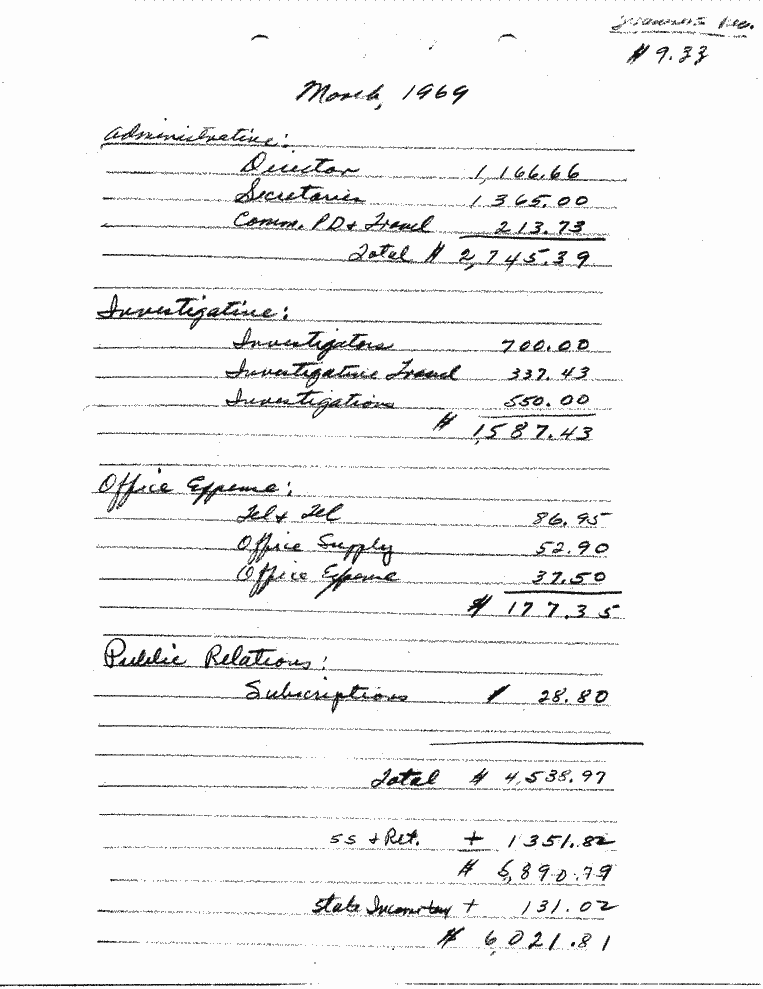 $ 9.33
March, 1969
Administrative:
Director 1,166.66
Secretaries 1,365.00
Comm. PD + Travel 213.73
Total $ 2,745.39
Investigative:
Investigators 700.00
Investigative Travel 337.43
Investigations 550.00
$ 1,587.43
Office Expense:
Tel + Tel 86.95
Office Supply 52.90
Office Expense 37.50
$ 177.35
Public Relations:
Subscriptions $ 28.80
Total $ 4,538.97
SS + Ret. + 1351.82
$ 5,890.79
State Income tax + 131.02
$ 6,021.81